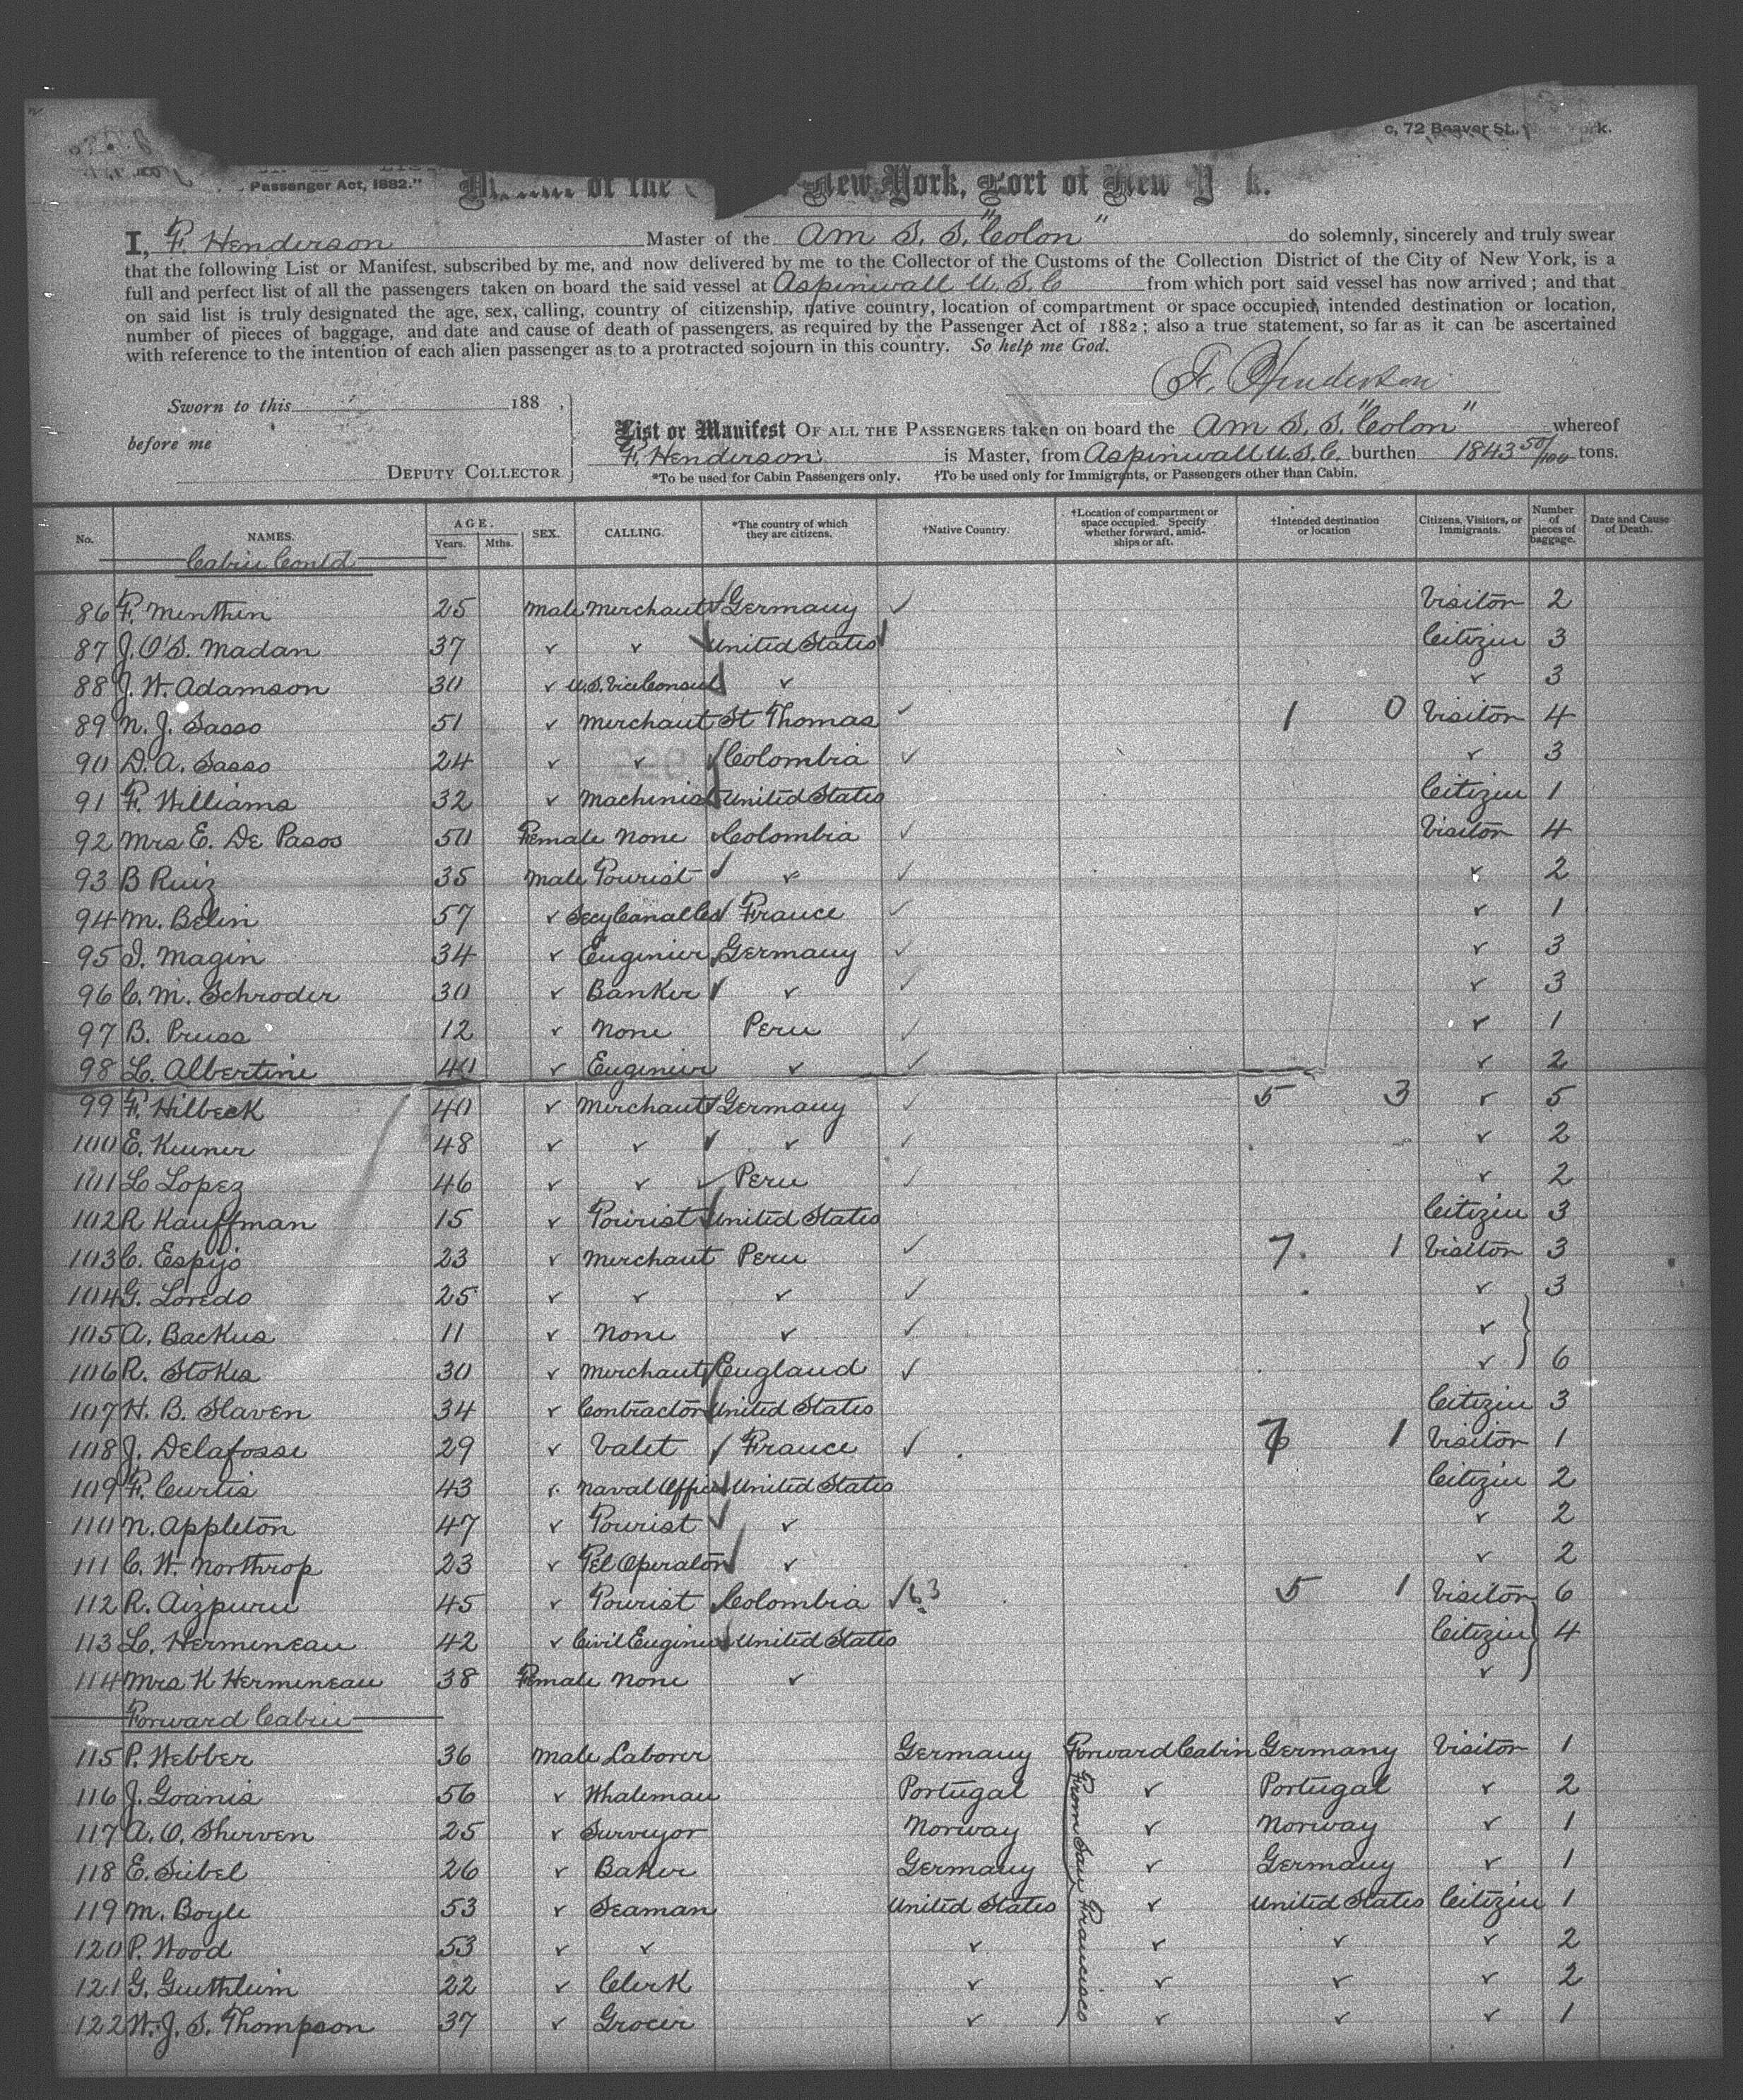 c, 72 Beaver St., New York.
Passenger Act, 1882."
of the New York, Port of New Y k.
I, F. Henderson Master of the Am S. S. "Colon" do solemnly, sincerely and truly swear
that the following List or Manifest, subscribed by me, and now delivered by me to the Collector of the Customs of the Collection District of the City of New York, is a
full and perfect list of all the passengers taken on board the said vessel at Aspinwall U. S. C from which port said vessel has now arrived; and that
on said list is truly designated the age, sex, calling, country of citizenship, native country, location of compartment or space occupied, intended destination or location,
number of pieces of baggage, and date and cause of death of passengers, as required by the Passenger Act of 1882; also a true statement, so far as it can be ascertained
with reference to the intention of each alien passenger as to a protracted sojourn in this country. So help me God.
F. Henderson
Sworn to this 188 ,
before me
DEPUTY COLLECTOR
List or Manifest OF ALL THE PASSENGERS taken on board the Am S. S. "Colon" whereof
F. Henderson is Master, from Aspinwall U.S.C. burthen 1843 50/100 tons.
*To be used for Cabin Passengers only. †To be used only for Immigrants, or Passengers other than Cabin.
No. NAMES. AGE. Years. Mths. SEX. CALLING. *The country of which they are citizens. †Native Country. †Location of compartment or space occupied. Specify whether forward, amidships or aft. †Intended destination or location Citizens, Visitors, or Immigrants. Number of pieces of baggage. Date and Cause of Death.
Cabin Contd
86 F. Menthen 25 Male Merchant ✓ Germany ✓ Visitor 2
87 J. O'S. Madan 37 ✓ ✓ ✓ United States Citizen 3
88 J. W. Adamson 30 ✓ U.S. Vice Consul ✓ ✓ 3
89 N. J. Sasso 51 ✓ Merchant St Thomas ✓ 1 0 Visitor 4
90 D. A. Sasso 24 ✓ ✓ ✓ Colombia ✓ ✓ 3
91 F. Williams 32 ✓ Machinist United States Citizen 1
92 Mrs E. De Pasos 50 Female None ✓ Colombia ✓ Visitor 4
93 B Ruiz 35 Male Tourist ✓ ✓ ✓ ✓ 2
94 M. Belin 57 ✓ Secy Canal Co ✓ France ✓ ✓ 1
95 I. Magin 34 ✓ Engineer Germany ✓ ✓ 3
96 C. M. Schroder 30 ✓ Banker ✓ ✓ ✓ ✓ 3
97 B. Pruss 12 ✓ None Peru ✓ ✓ 1
98 L. Albertini 40 ✓ Engineer ✓ ✓ ✓ 2
99 F. Hilbeck 40 ✓ Merchant ✓ Germany ✓ 5 3 ✓ 5
100 E. 48 ✓ ✓ ✓ ✓ ✓ ✓ 2
101 L Lopez 46 ✓ ✓ ✓ Peru ✓ ✓ 2
102 R Kauffman 15 ✓ Tourist United States Citizen 3
103 C. Espijo 23 ✓ Merchant Peru ✓ 7. 1 Visitor 3
104 G. Loredo 25 ✓ ✓ ✓ ✓ ✓ 3
105 A. Backus 11 ✓ None ✓ ✓ ✓
106 R. Stokes 30 ✓ Merchant England ✓ ✓ 6
107 H. B. Slaven 34 ✓ Contractor United States Citizen 3
108 J. Delafosse 29 ✓ Valet ✓ France ✓ 7 1 Visitor 1
109 F. Curtis 43 ✓ Naval Officer United States Citizen 2
110 N. Appleton 47 ✓ Tourist ✓ ✓ ✓ 2
111 C. W. Northrop 23 ✓ Tel Operator ✓ ✓ 2
112 R. Aizpuru 45 ✓ Tourist ✓ Colombia ✓ 63 5 1 Visitor 6
113 L. Hermineau 42 ✓ Civil Engineer United States Citizen 4
114 Mrs K Hermineau 38 Female None ✓ ✓
Forward Cabin
115 P. Webber 36 Male Laborer Germany Forward Cabin Germany Visitor 1
116 J. Goanis 56 ✓ Whaleman Portugal ✓ Portugal ✓ 2
117 A. O. Sherven 25 ✓ Surveyor Norway ✓ Norway ✓ 1
118 E. Seibel 26 ✓ Baker Germany ✓ Germany ✓ 1
119 M. Boyle 53 ✓ Seaman United States ✓ United States Citizen 1
120 P. Wood 53 ✓ ✓ ✓ ✓ ✓ ✓ 2
121 G. Guthleim 22 ✓ Clerk ✓ ✓ ✓ ✓ 2
122 W. J. S. Thompson 37 ✓ Grocer ✓ ✓ ✓ ✓ 1
From San Francisco